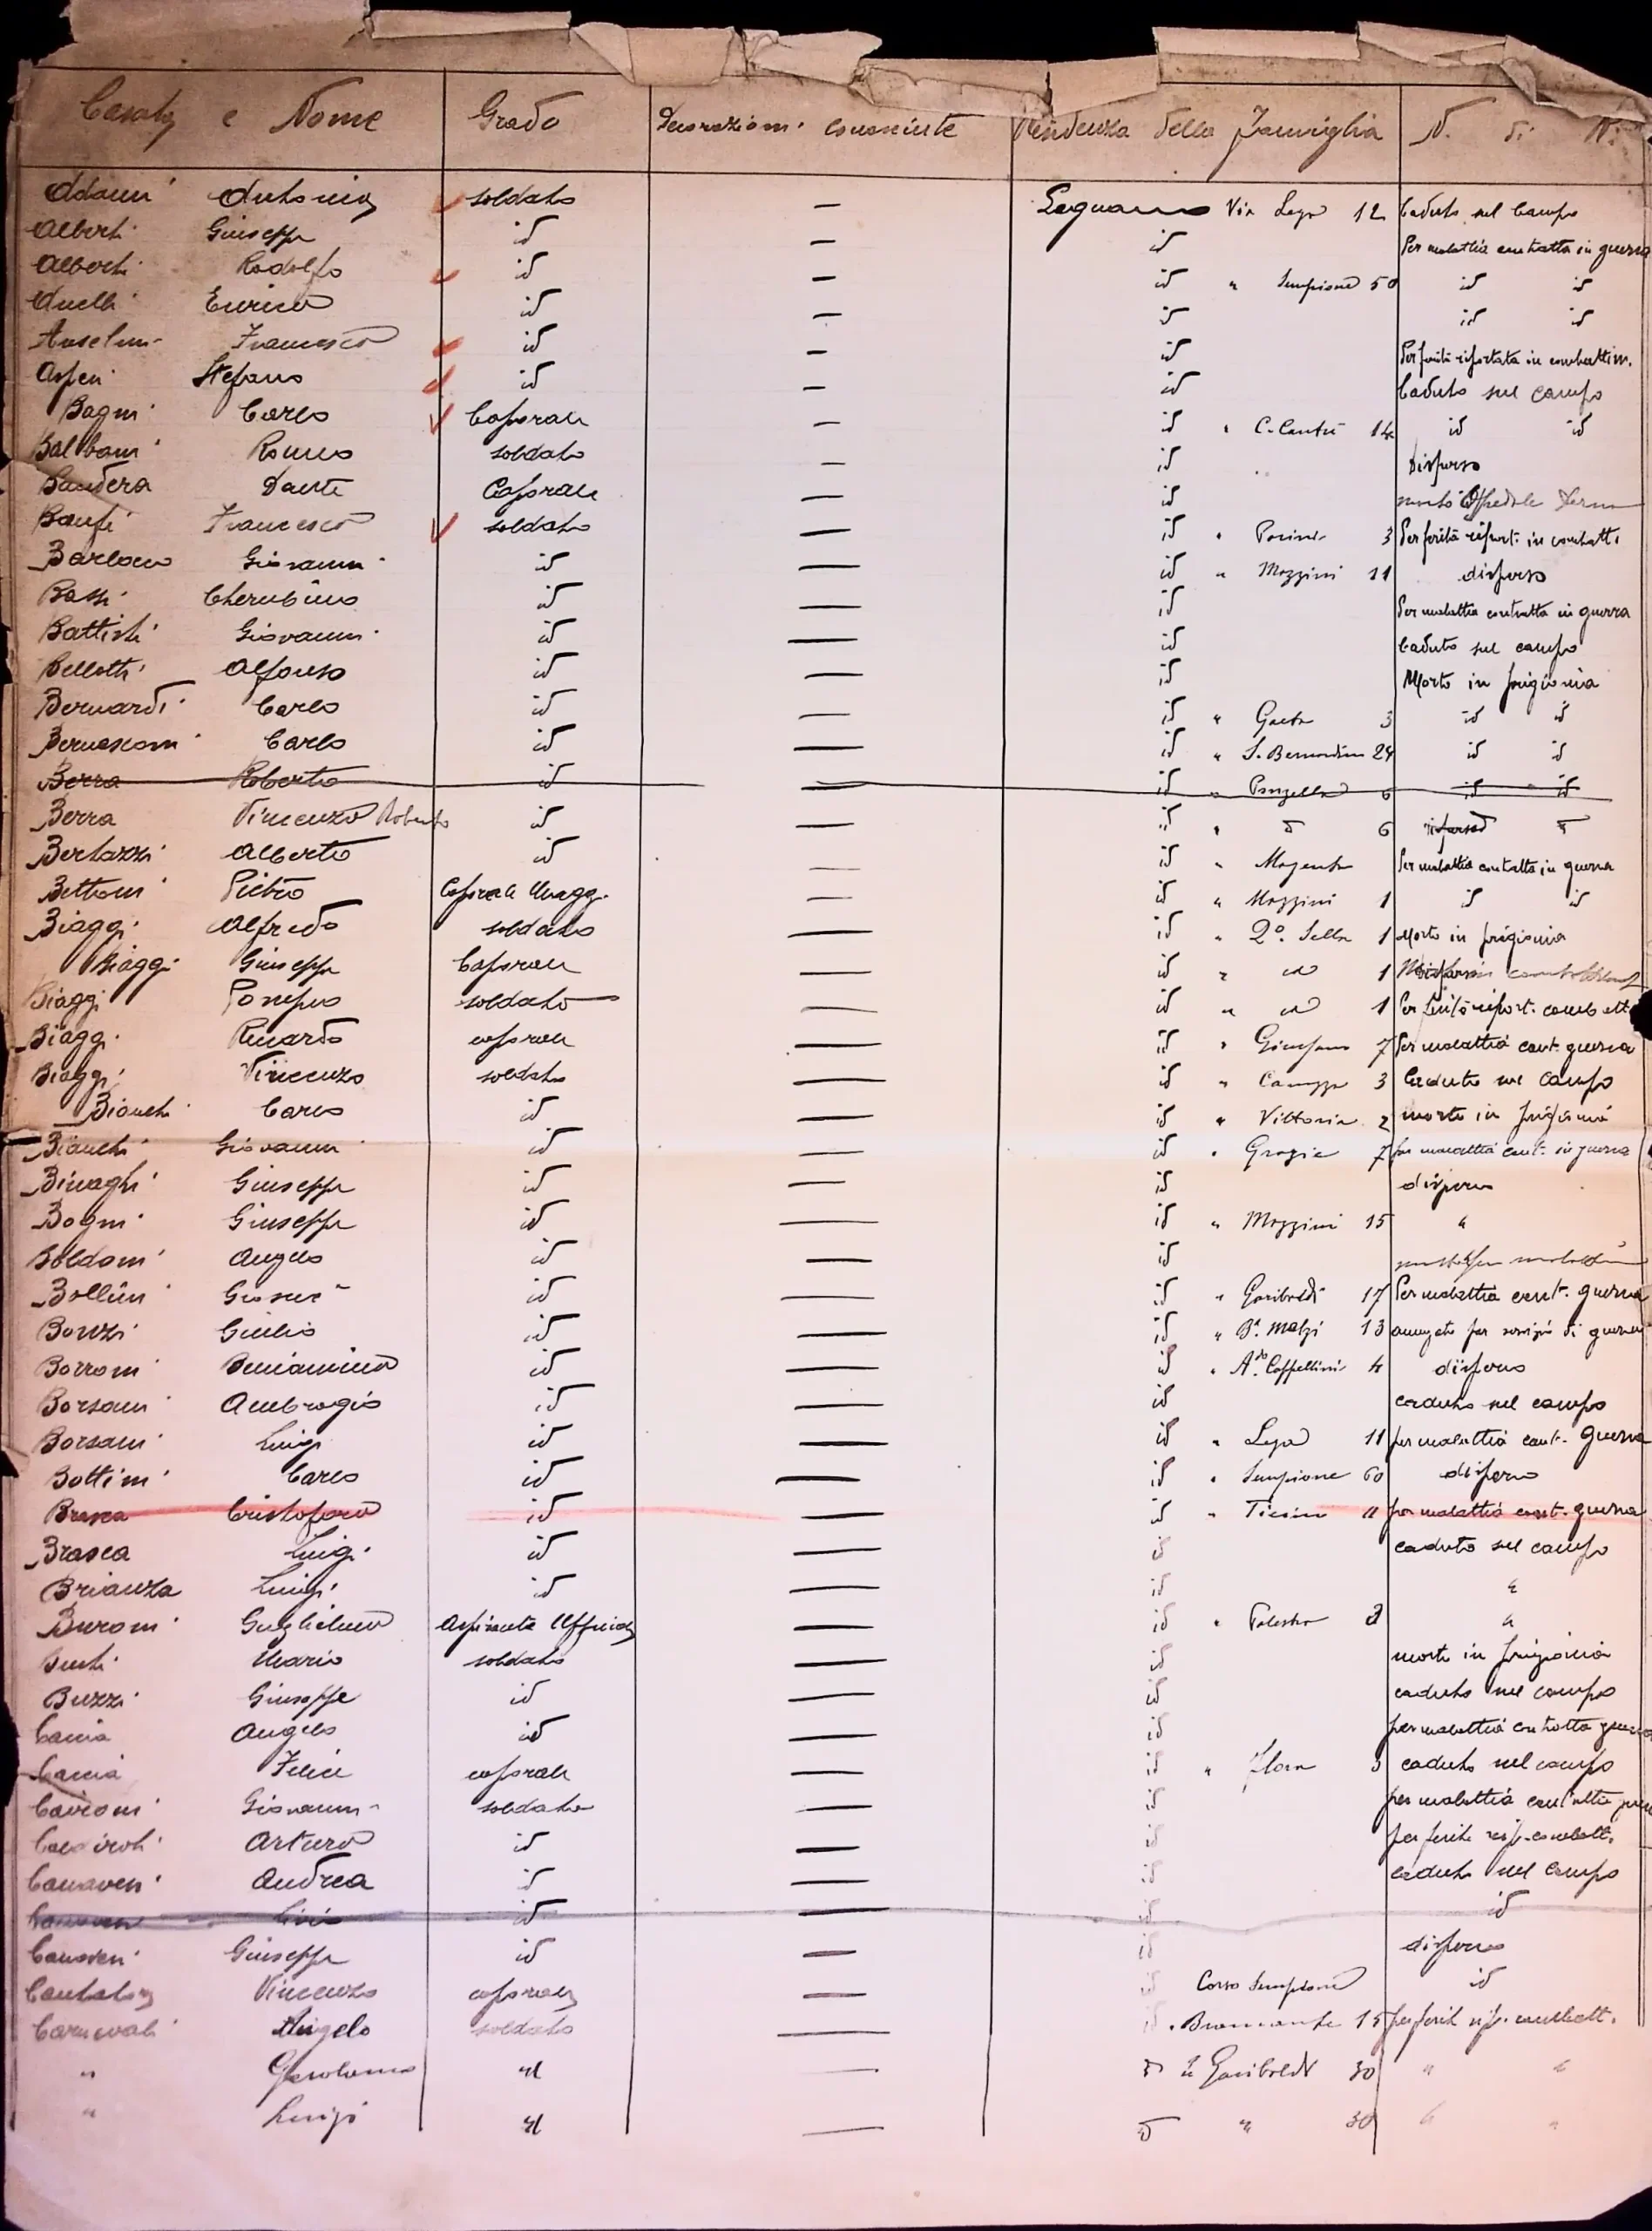 Casato e Nome Grado Decorazioni conosciute Residenza della Famiglia N. di N.
Adami Antonio soldato — Legnano Via Lega 12 Caduto sul Campo
Alberti Giuseppe id — id Per malattia contratta in guerra
Alberti Rodolfo id — id " Sempione 50 id id
Anelli Enrico id — id id id
Anselmi Francesco id — id Per ferite riportate in combattim.
Asperi Stefano id — id Caduto sul campo
Bagni Carlo Caporale — id " C. Cantù 14 id id
Balbani Romeo soldato — id Disperso
Bandera Dante Caporale — id morto Ospedale
Banfi Francesco soldato — id " 3 Per ferite riport. in combatt.
Barlocco Giovanni id — id " Mazzini 11 disperso
Bassi Cherubino id — id Per malattia contratta in guerra
Battisti Giovanni id — id Caduto sul campo
Bellotti Alfonso id — id Morto in prigionia
Bernardi Carlo id — id " Gaeta 3 id id
Bernasconi Carlo id — id " S. Bernardino 24 id id
Berra Roberto id — id " 6 id id
Berra Vincenzo Roberto id — id " 6
Bertazzi Alberto id — id " Magenta Per malattia contratta in guerra
Bettoni Pietro Caporale Magg. — id " Mazzini 1 id id
Biaggi Alfredo soldato — id " Qo. Sella 1 Morto in prigionia
Biaggi Giuseppe Caporale — id " id 1
Biaggi Pompeo soldato — id " id 1 Per ferite riport. combatt
Biaggi Renardo caporale — id " 7 Per malattia cont. guerra
Biaggi Vincenzo soldato — id " 3 Caduto sul Campo
Bianchi Carlo id — id " Vittoria 2 morto in prigionia
Bianchi Giovanni id — id " Grazie 7 per malattia cont. in guerra
Binaghi Giuseppe id — id disperso
Bogni Giuseppe id — id " Mazzini 15 "
Boldoni Angelo id — id
Bollini Giosuè id — id " Garibaldi 17 Per malattia cont. guerra
Bonzi Giulio id — id " Ba. Melzi 13 per servizio di guerra
Borroni Beniamino id — id " Ado. Cappellini 4 disperso
Borsani Ambrogio id — id caduto sul campo
Borsani Luigi id — id " Lega 11 per malattia cont. guerra
Bottini Carlo id — id " Sempione 60 disperso
Brasca Cristoforo id id " Ticino 11 per malattia cont. guerra
Brasca Luigi id — id caduto sul campo
Brianza Luigi id — id "
Buroni Guglielmo Aspirante Ufficiale — id " Palestro 2 "
Busti Mario soldato — id morto in prigionia
Buzzi Giuseppe id — id caduto sul campo
Caccia Angelo id — id per malattia contratta guerra
Caccia Felice caporale — id " Flora 3 caduto sul campo
Cavioni Giovanni soldato — id per malattia
Arturo id — id per ferite rip. combatt.
Canavesi Andrea id — id caduto sul campo
Canavesi Livio id — id id
Canavesi Giuseppe id — id disperso
Vincenzo caporale — id Corso Sempione id
Carnevali Angelo soldato — id " Bramante 15 per ferite rip. combatt.
" Gerolamo id — id Garibaldi 30 " "
" Luigi id — id " 30 " "